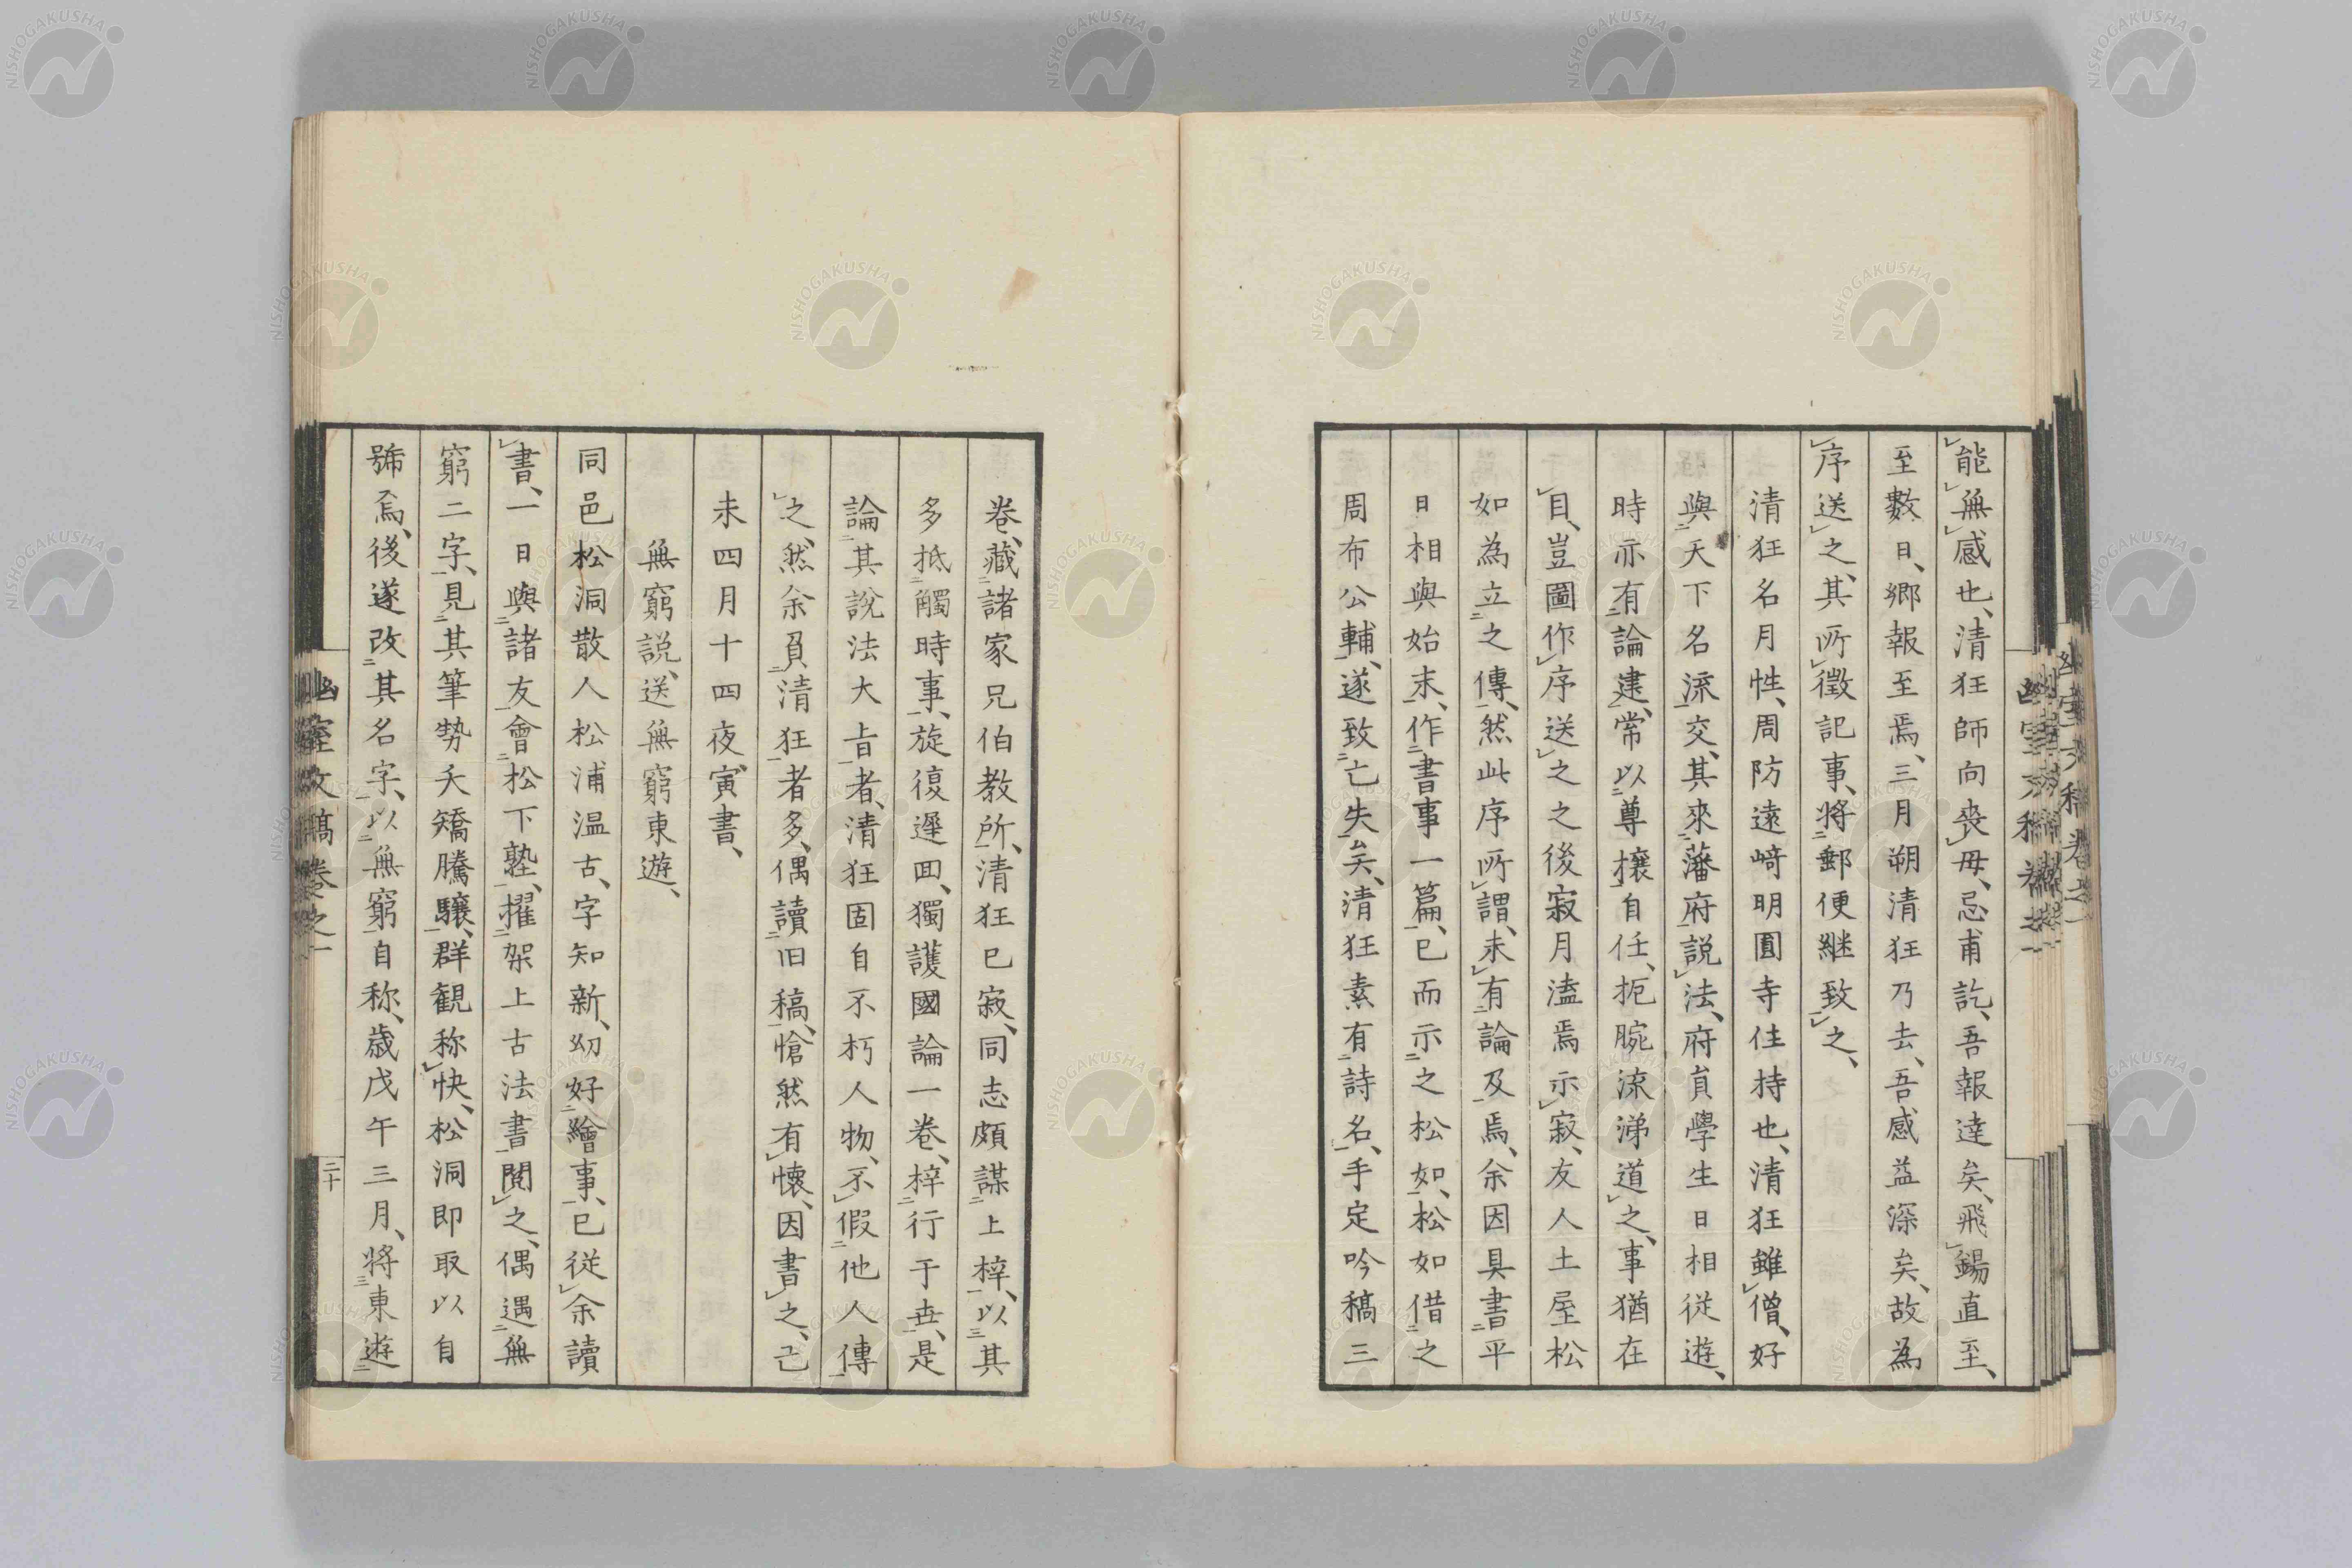 能無感也、清狂師向喪母、忌甫訖、吾報達矣、飛錫直至、
至數日、郷報至焉、三月朔清狂乃去、吾感益深矣、故為
序送之、其所徴記事、將郵便継致之、
清狂名月性、周防遠﨑明圓寺住持也、清狂雖僧、好
與天下名流交、其來藩府説法、府貟學生日相従遊、
時亦有論建、常以尊攘自任、扼腕流涕道之、事猶在
目、豈圖作序送之之後寂月溘焉示寂、友人土屋松
如為立之傳、然此序所謂、未有論及焉、余因具書平
日相與始末、作書事一篇、已而示之松如、松如借之
周布公輔、遂致亡失矣、清狂素有詩名、手定吟稿三
卷、藏諸家兄伯教所、清狂已寂、同志頗謀上梓、以其
多抵觸時事、旋復遲回、獨護國論一卷、梓行于世、是
論其説法大旨者、清狂固自不朽人物、不假他人傳
之、然余負清狂者多、偶讀旧稿、愴然有懐、因書之、己
未四月十四夜、寅書、
無窮説、送無窮東遊、
同邑松洞散人松浦温古、字知新、幼好繪事、已従余讀
書、一日與諸友會松下塾、擢架上古法書閲之、偶遇無
窮二字、見其筆勢夭矯騰驤、群観称快、松洞即取以自
號焉、後遂改其名字、以無窮自称、歳戊午三月、將東遊
幽室文稿卷之一
二十
NISHOGAKUSHA